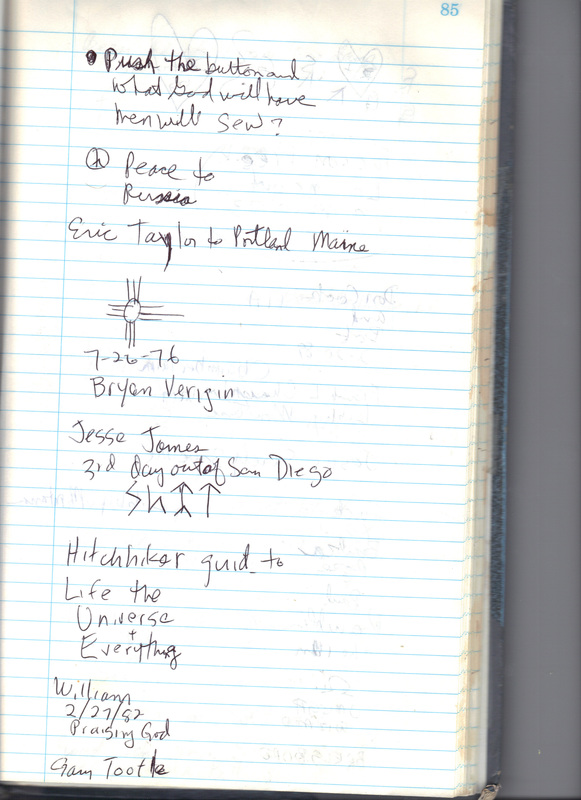 85
• Push the button and
what God will have
men will sew?
Peace to
Russia
Eric Taylor to Portland Maine
7-26-76
Bryan Verigin
Jesse James
3rd day out of San Diego
Hitchhiker guid to
Life the
Universe
+
Everything
William
2/27/82
Praising God
Gary Tootle